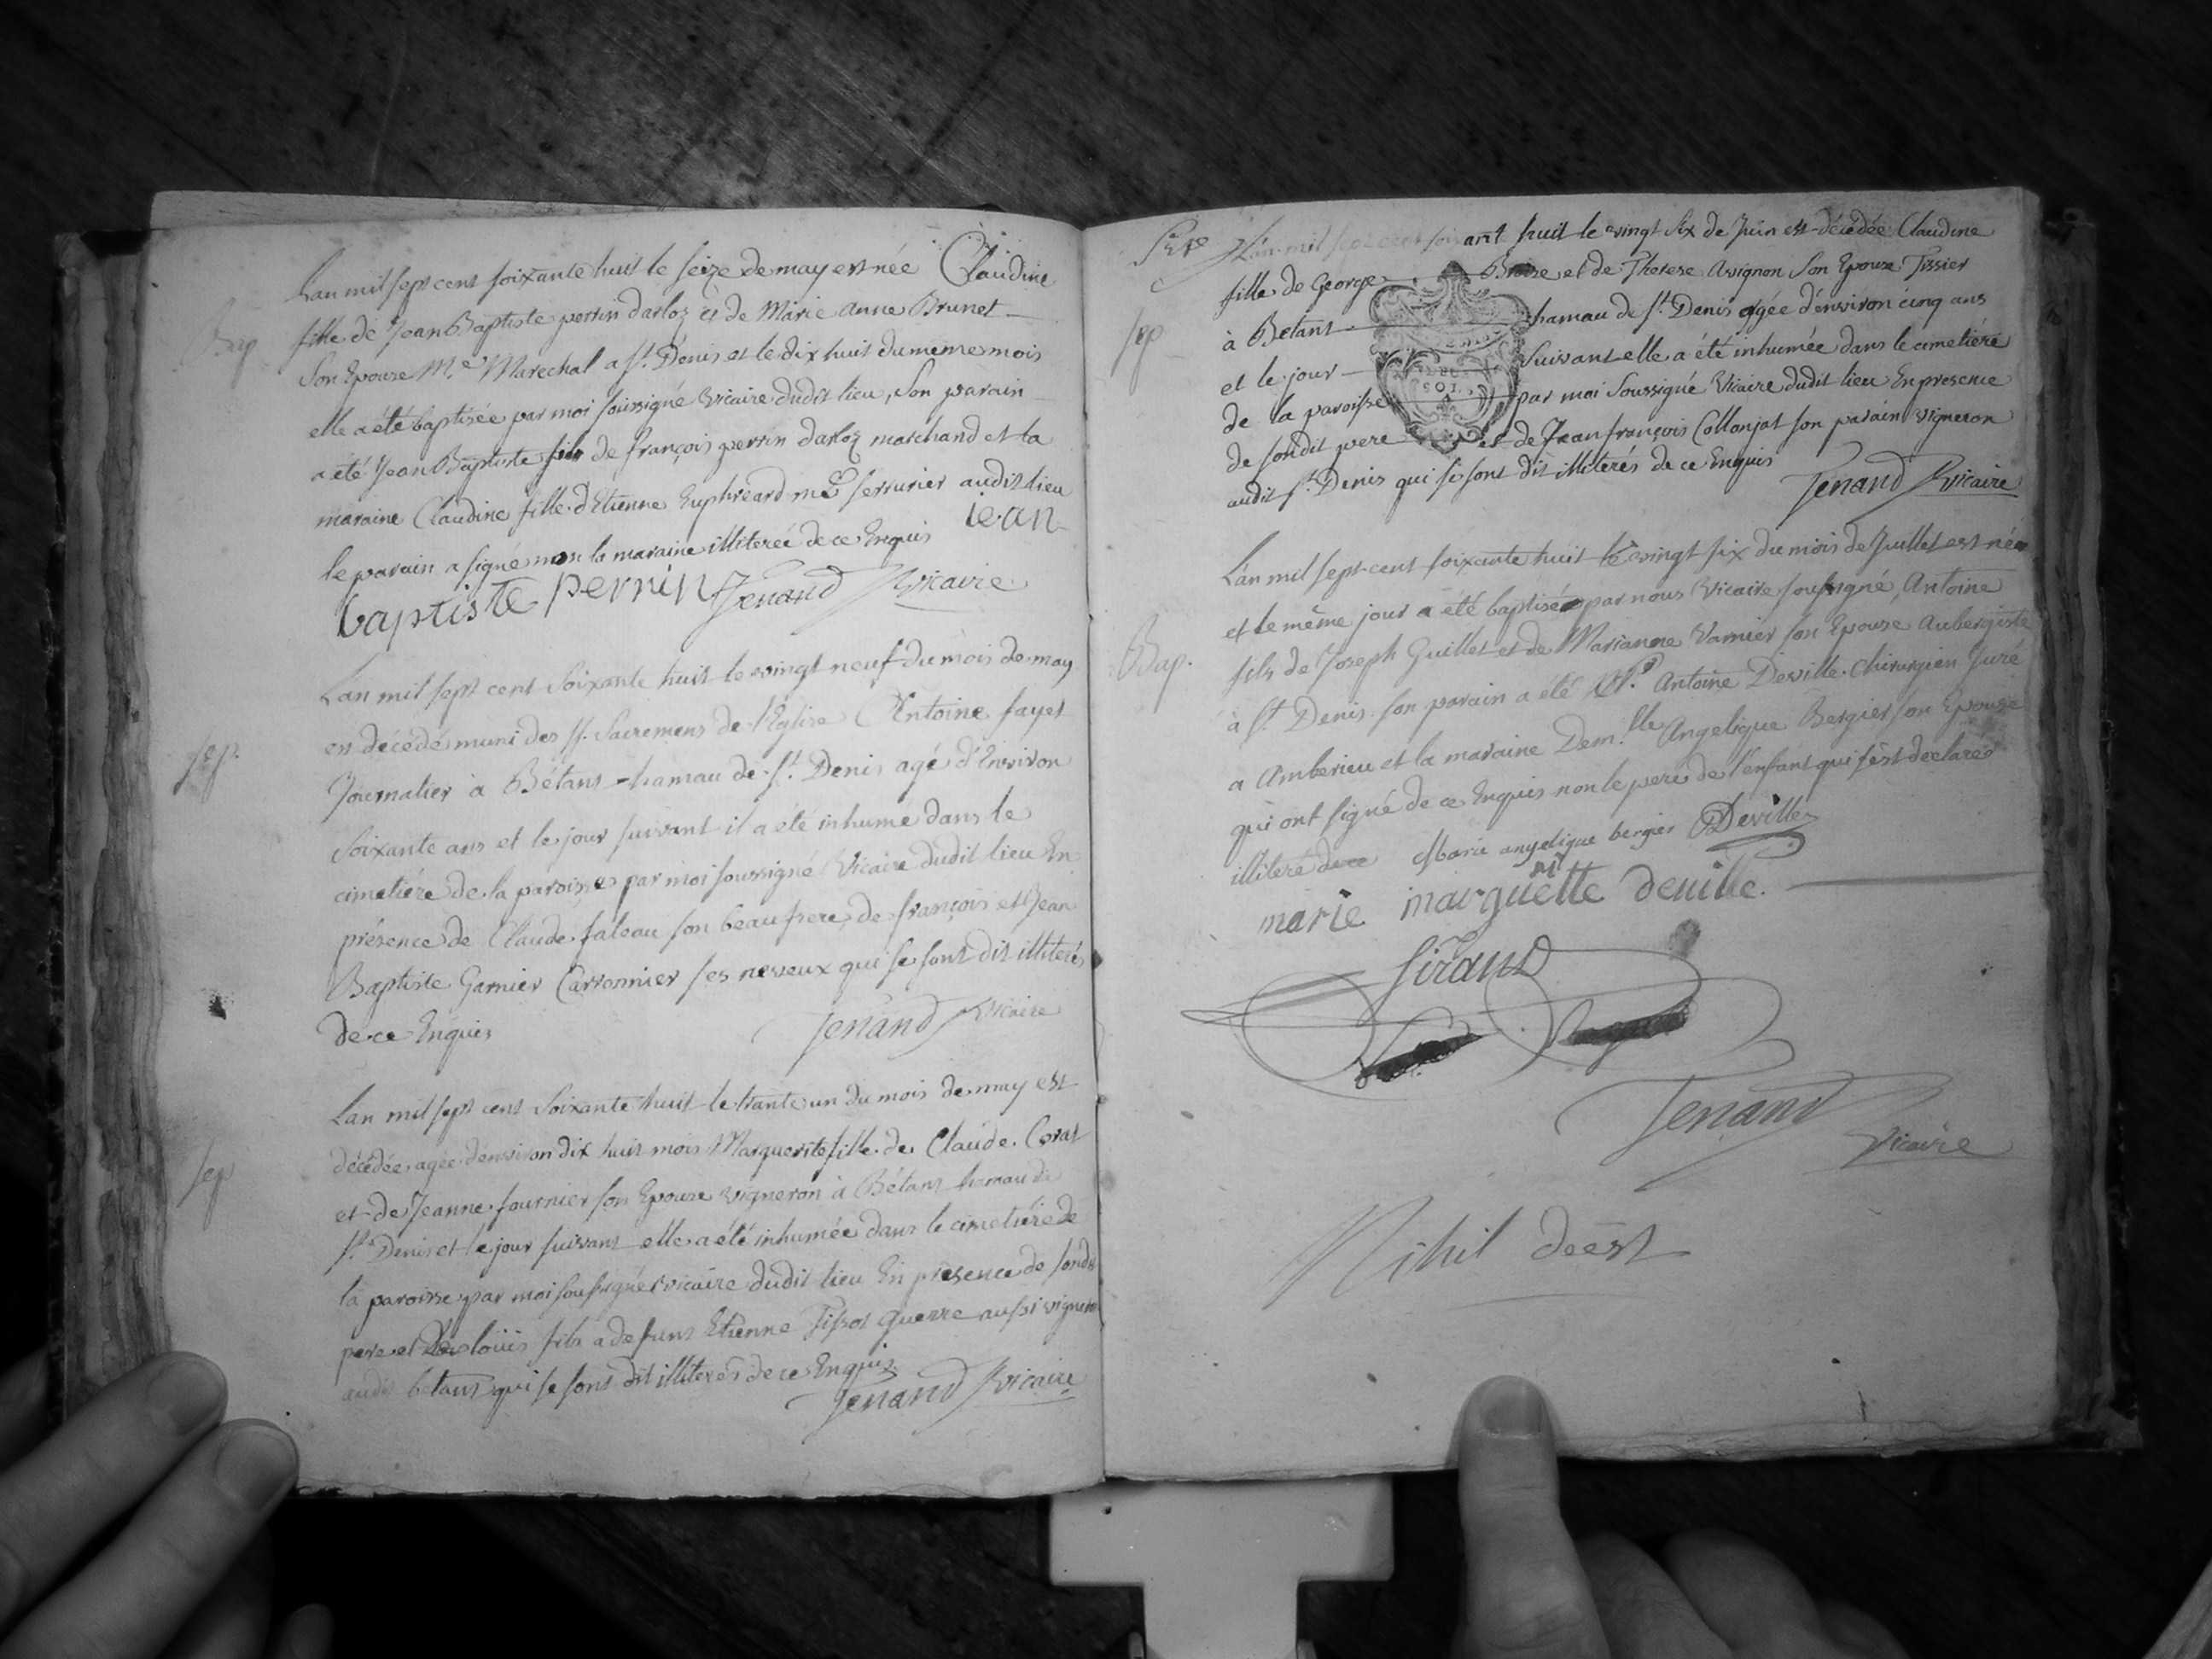 Bap
Lan mil sept cent soixante huit le seize de may est née Claudine
fille de Jean Baptiste perrin darloz et de Marie Anne Brunet
son Epouse M.e Marechal a st. Denis et le dix huit du meme mois
elle a été baptisée par moi soussigné vicaire dudit lieu, son parain
a été Jean Baptiste fils de françois perrin darloz marchand et la
maraine Claudine fille d'Etienne Euphreard me serrurier audit lieu
le parain a signé non la maraine illiterée de ce Enquis
jean
baptiste perrin Jenand Vicaire
sep.
Lan mil sept cent soixante huit le vingt neuf du mois de may
est décédé muni des ss. Sacremens de l'Eglise Antoine fayet
Journalier à Bétans hamau de st. Denis agé d'Environ
soixante ans et le jour suivant il a été inhumé dans le
cimetiére de la paroisse par moi soussigné Vicaire dudit lieu En
présence de Claude faleau son beaufrere, de françois et Jean
Baptiste Garnier Carronnier ses neveux qui se sont dit illiterés
de ce Enquis
Jenand Vicaire
sep
Lan mil sept cent soixante huit le trante un du mois de may est
décédée agée d'environ dix huit mois Marguerite fille de Claude Corat
et de Jeanne fournier son Epouse vigneron à Bétans hamau de
st. Denis et le jour suivant elle a été inhumée dans le cimetiére de
la paroisse par moi soussigné vicaire dudit lieu En presence de sondit
pere et louis fils a defunt Etienne Tissot Guerre aussi vigneron
audit betans qui se sont dit illiterés de ce Enquis
Jenand Vicaire
sep
Lan mil sept cent soixant huit le vingt six de Juin est décédée Claudine
fille de George et de Therese Avignon son Epouse Tissier
à Bétans hamau de st. Denis agée d'énviron cinq ans
et le jour suivant elle a été inhumée dans le cimetiére
de la paroisse par moi soussigné Vicaire dudit lieu En presence
de sondit pere et de Jean françois Collonjat son parain vigneron
audit st. Denis qui se sont dit illiterés de ce Enquis
Jenand Vicaire
Bap.
Lan mil sept cent soixante huit le vingt six du mois de Juillet est né
et le même jour a été baptisé par nous Vicaire soussigné, Antoine
fils de Joseph Guillet et de Marianne Varnier son Epouse Aubergiste
à st. Denis son parain a été Sr. Antoine Deville chirurgien Juré
a Amberieu et la maraine Dem.lle Angelique Bergier son Epouse
qui ont signé de ce Enquis non le pere de l'enfant qui s'est declaré
illiteré de ce
Marie angelique bergier Deville
marie marguette deville.
Sirand
Jenand
Vicaire
Nihil deest